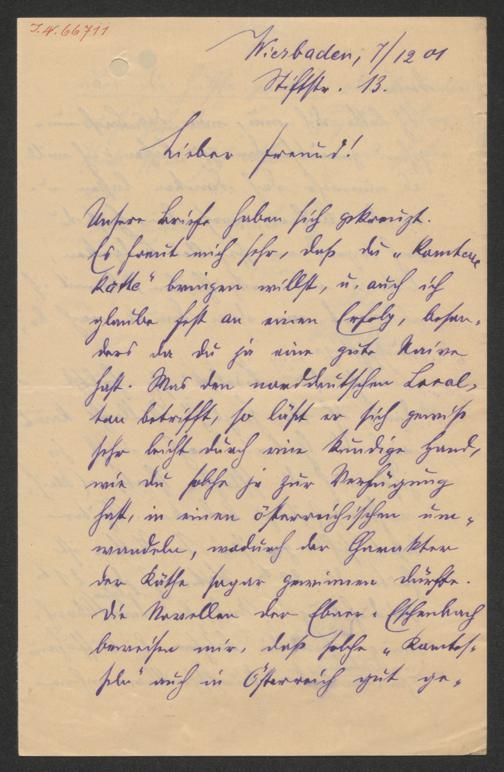 J.N. 66711
Wiesbaden, 7/12 01
Stiftstr. 13.
Lieber Freund!
Unsere Briefe haben sich gekreuzt.
Es freut mich sehr, daß du „Komtesse
Käthe" bringen willst, u. auch ich
glaube fest an einen Erfolg, beson-
ders da du ja eine gute Naive
hast. Was den norddeutschen Local-
ton betrifft, so läßt er sich gewiß
sehr leicht durch eine kundige Hand,
wie du solche ja zur Verfügung
hast, in einen österreichischen um-
wandeln, wodurch der Charakter
der Käthe sogar gewinnen dürfte.
Die Novellen der Ebner-Eschenbach
beweisen mir, daß solche „Komtes-
seln" auch in Österreich gut ge-